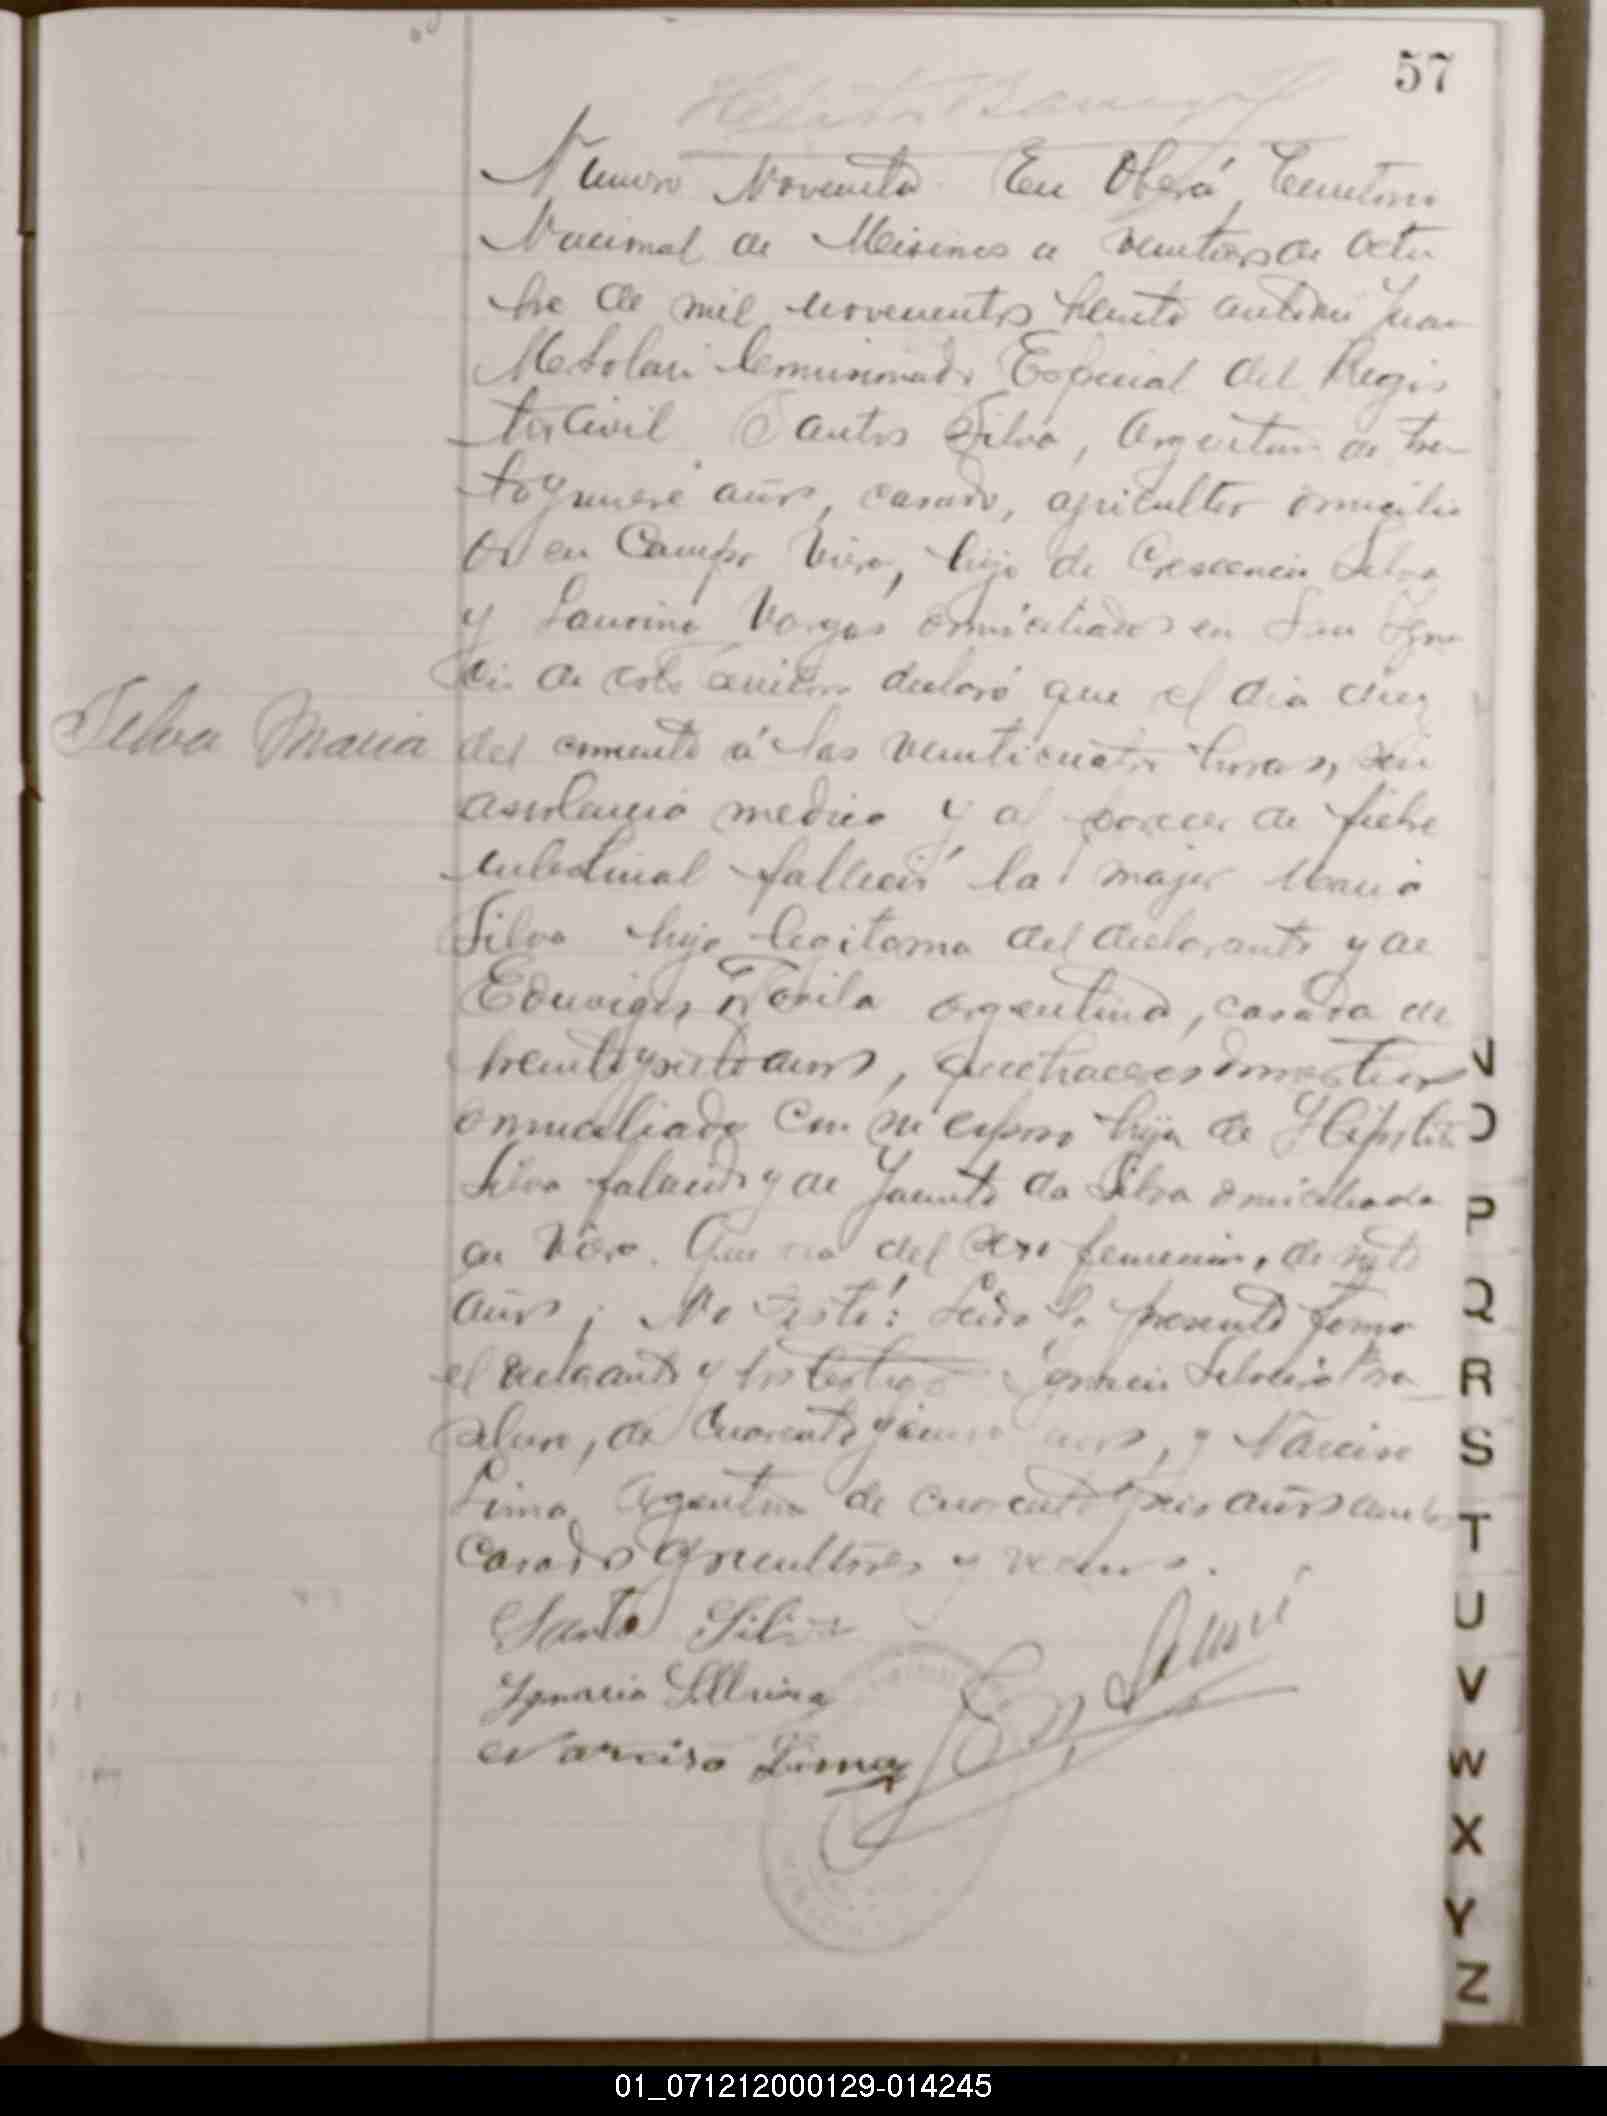 57
Numero Noventa. En Oberá, Territorio
Nacional de Misiones a veintitres de Octu
bre de mil novecientos treinta ante mi Juan
M Solari Comisionado Especial del Regis
tro Civil Santos Silva, Argentino de trein
ta y nueve años, casado, agricultor domicilia
do en Campo Viera, hijo de Crescencio Silva
y Laurina Vargas domiciliados en San Igna
cio de este Territorio declaró que el dia diez
Silva Maria
del corriente á las veinticuatro horas, sin
asistencia medica y al parecer de fiebre
intestinal falleció la mujer Maria
Silva hija legitima del declarante y de
Eduviges argentina, casada de
treinta y siete años, quehaceres domesticos
domiciliada con su esposo hija de Hipolito
Silva falecido y de Jacinta da Silva domiciliada
en Viera. Que era del sexo femenino, de siete
años; No testó: Leida la presente firma
el declarante y los testigos Ignacio Silveira Bra
silero, de cuarenta y cinco años, y Narciso
Lima Argentino de cuarenta y seis años ambos
casados agricultores y vecinos.
Santo Silva
Ignacio Sillveira
Narciso Lima
N
O
P
Q
R
S
T
U
V
W
X
Y
Z
01_071212000129-014245